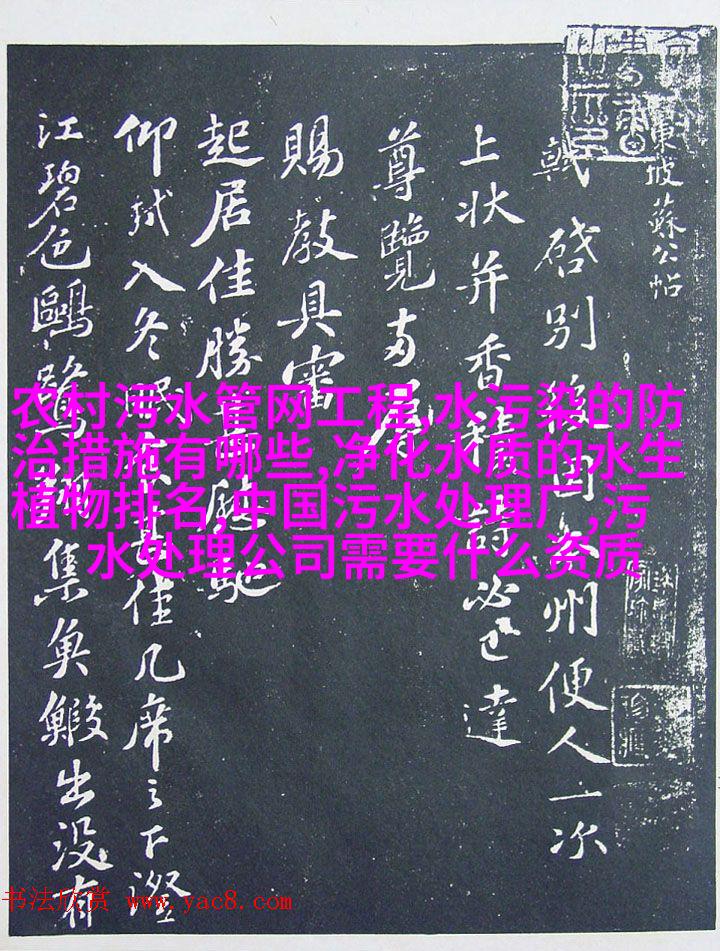 東坡蘇公帖
軾啓別後因州便人一次
上狀并香積詩必已達
尊覽辱
賜教具審
起居佳勝慰馳
仰軾入冬眠食甚佳几席之下澄
江碧色鷗鷺翔集魚鰕出没有
农村污水管网工程,水污染的防
治措施有哪些,净化水质的水生
植物排名,中国污水处理厂,污
水处理公司需要什么资质
书法欣赏 www.yac8.com